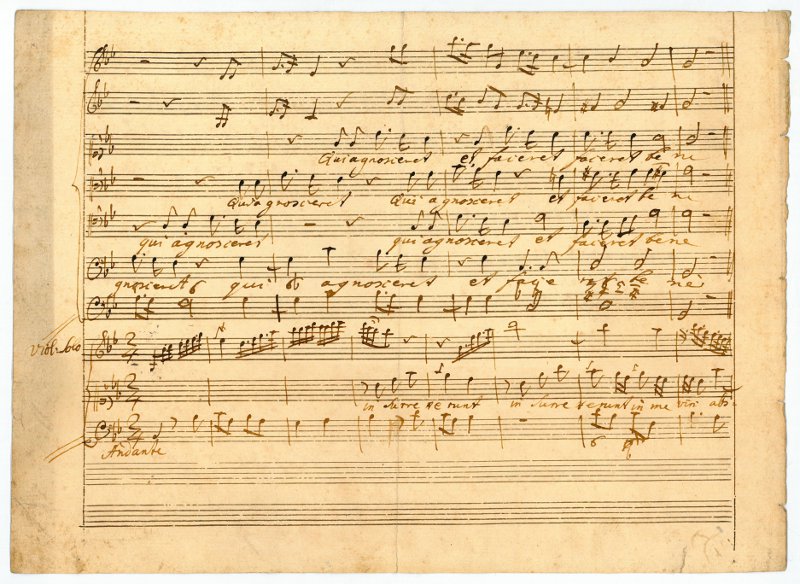 Qui agnosceret et faceret faceret bene
Qui agnosceret Qui agnosceret et faceret bene
qui agnosceret qui agnosceret et faceret bene
gnosceret qui agnosceret et
in surre xerunt in surre xerunt in me viri abs
Andante